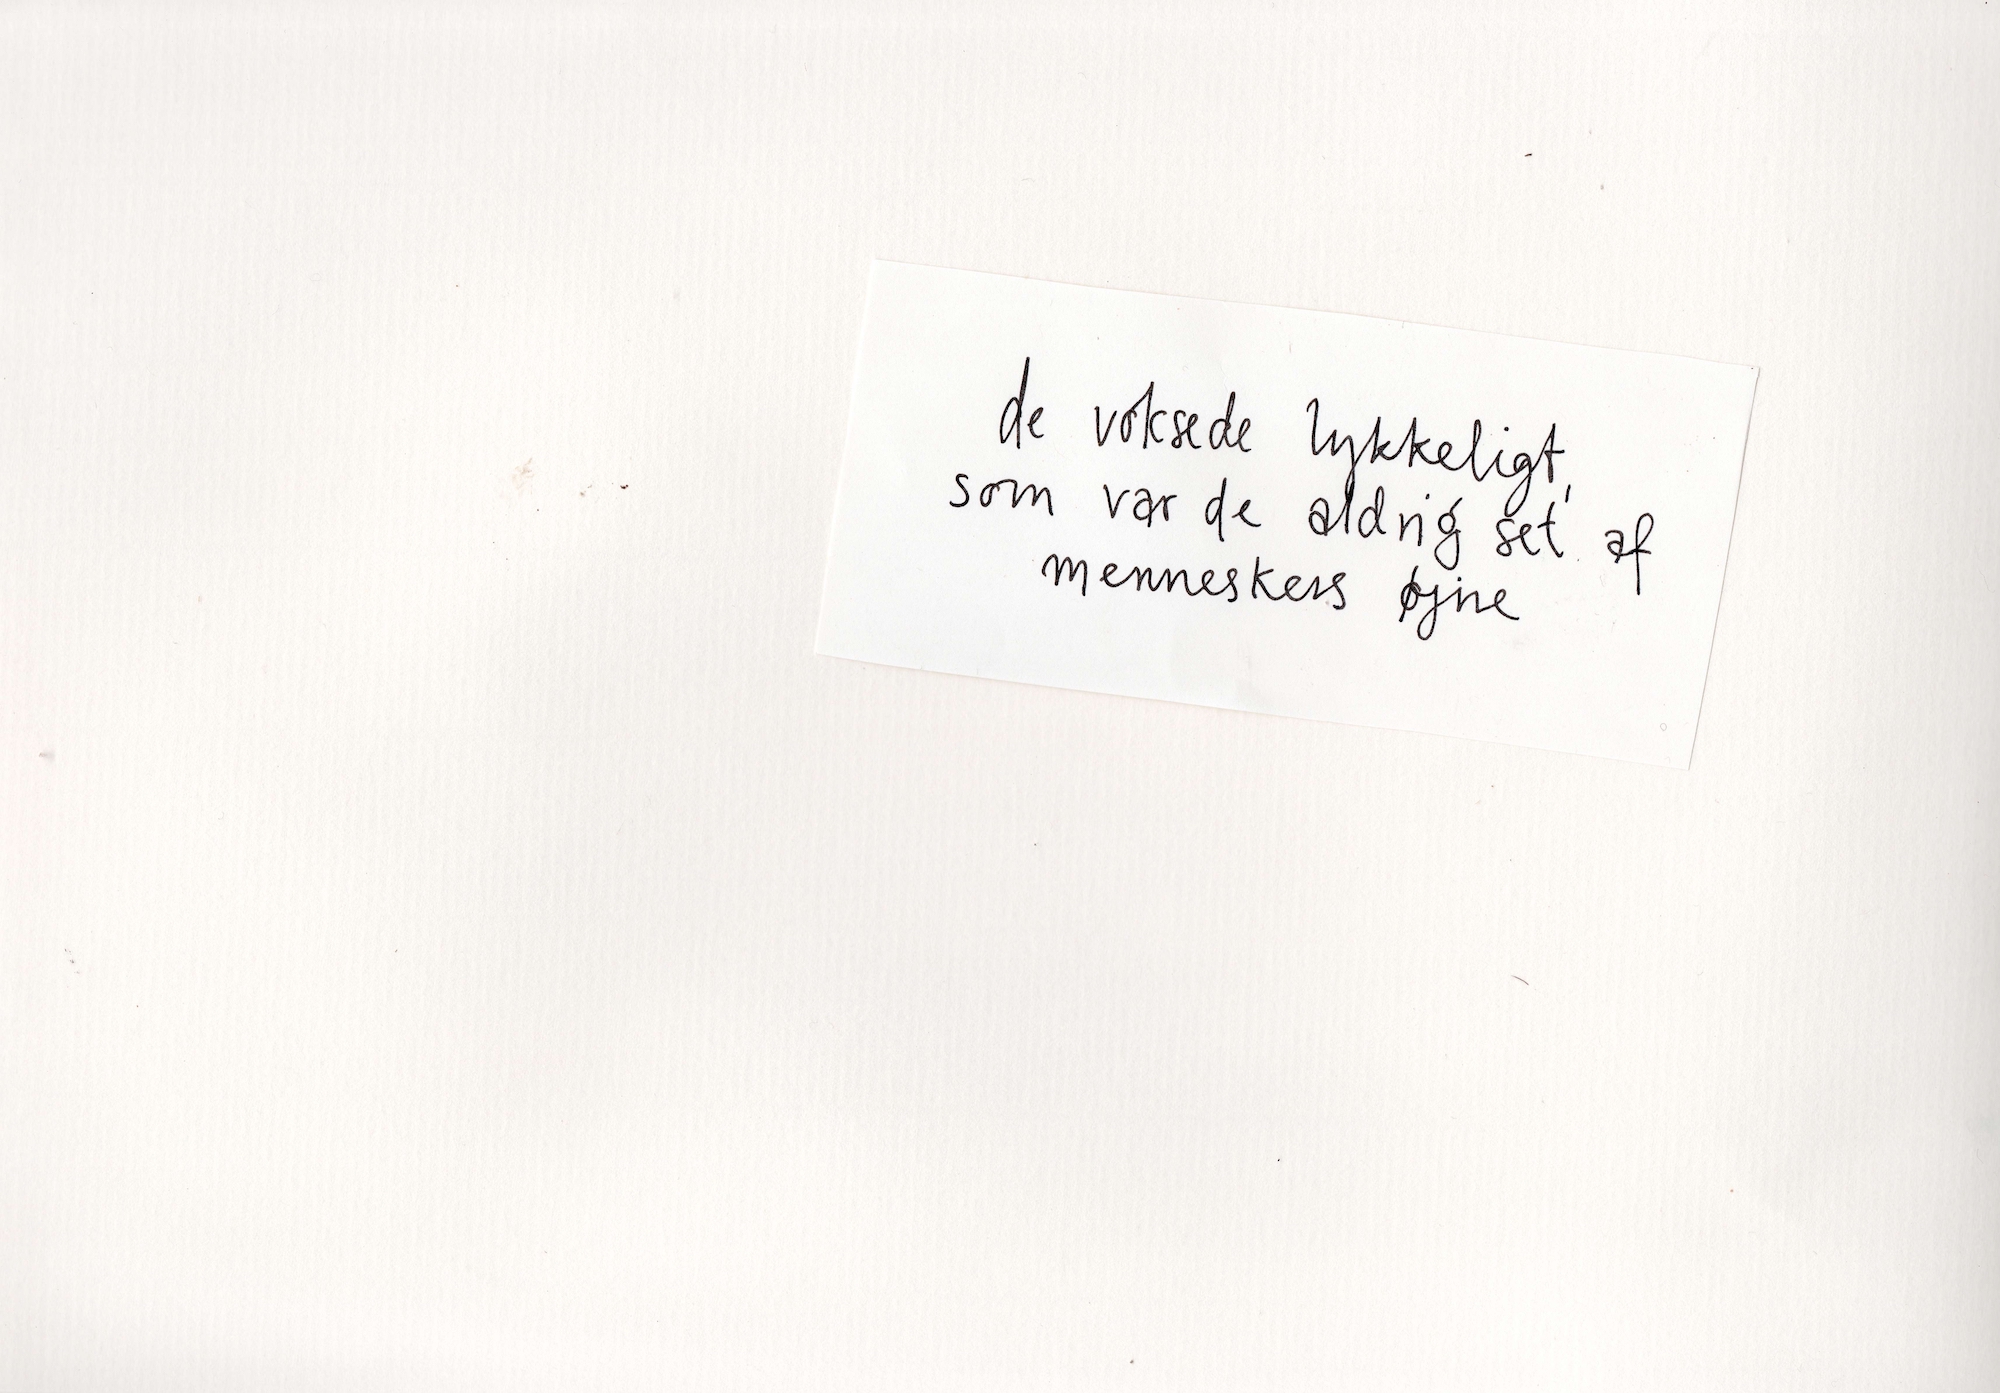 de voksede lykkeligt,
som var de aldrig set af
menneskers øjne